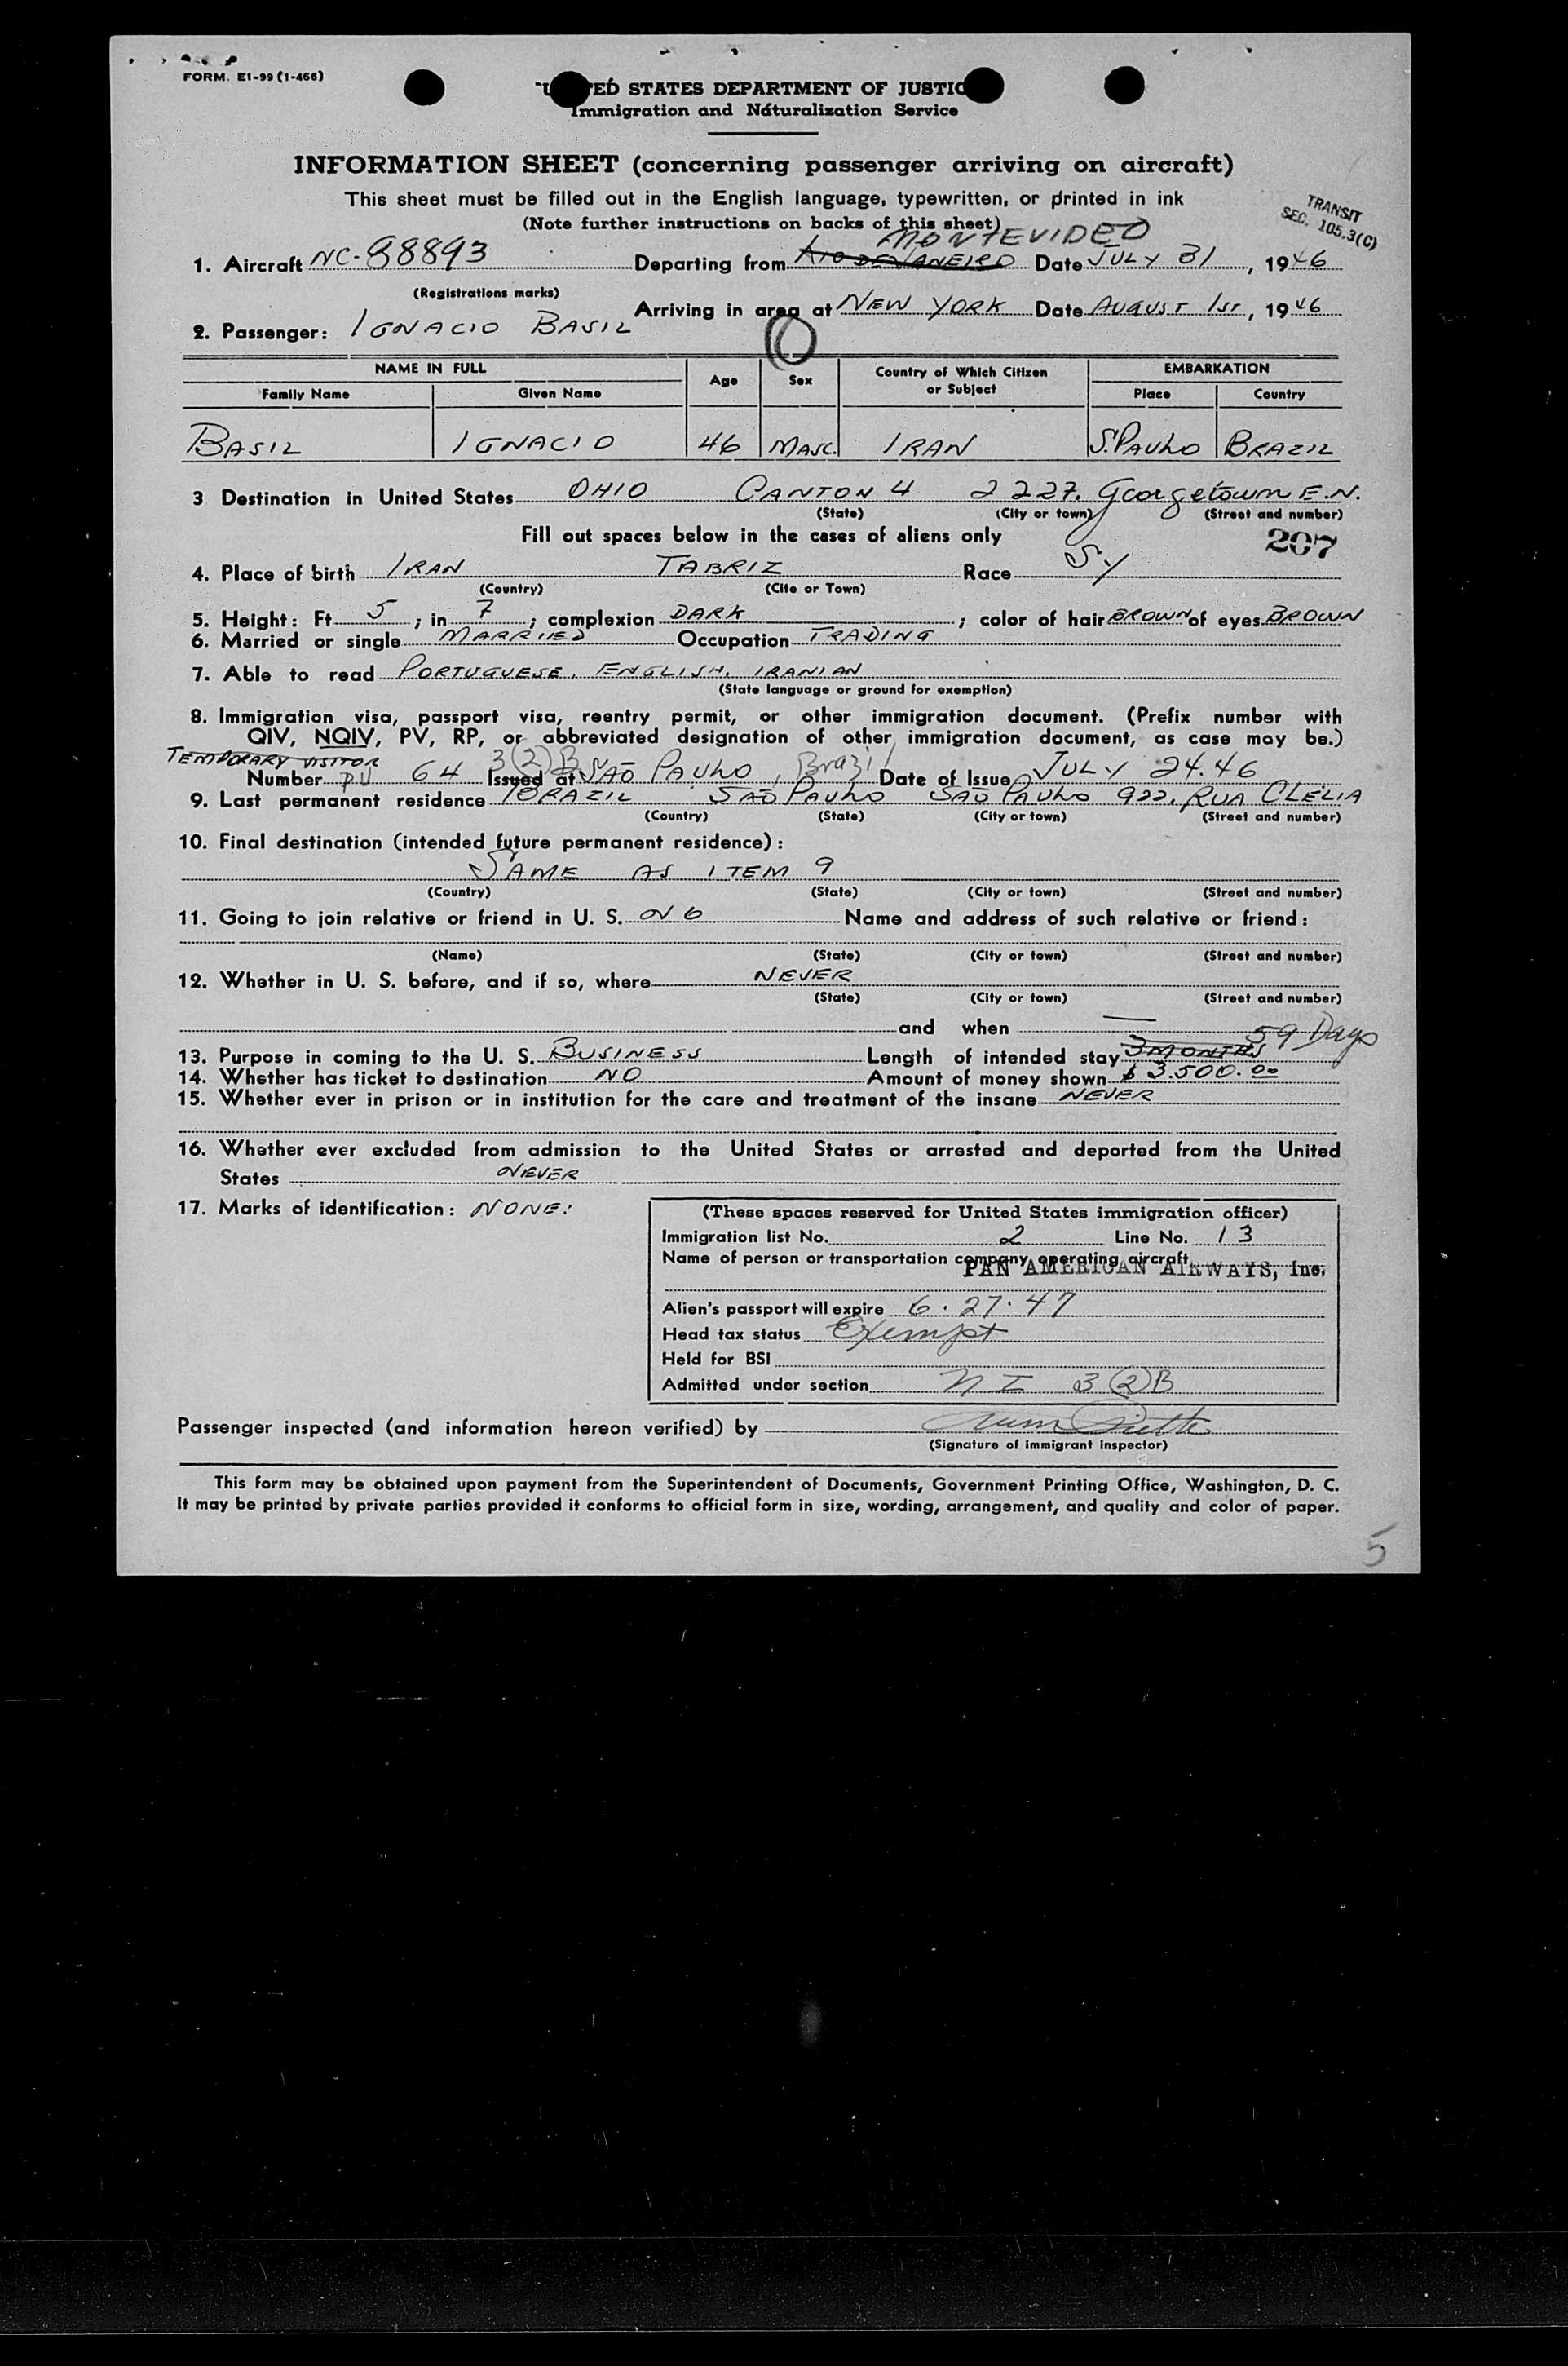 FORM. E1-99 (1-466)
UNITED STATES DEPARTMENT OF JUSTICE
Immigration and Naturalization Service
INFORMATION SHEET (concerning passenger arriving on aircraft)
This sheet must be filled out in the English language, typewritten, or printed in ink
(Note further instructions on backs of this sheet)
TRANSIT
SEC. 105.3(C)
MONTEVIDEO
1. Aircraft NC-88893 Departing from RIO DE JANEIRO Date JULY 31, 1946
(Registrations marks)
Arriving in area at NEW YORK Date AUGUST 1ST, 1946
2. Passenger: IGNACIO BASIL
NAME IN FULL Age Sex Country of Which Citizen or Subject EMBARKATION
Family Name Given Name Place Country
BASIL IGNACIO 46 MASC. IRAN S.PAULO BRAZIL
3 Destination in United States OHIO CANTON 4 2227. Georgetown E.N.
(State) (City or town) (Street and number)
Fill out spaces below in the cases of aliens only
207
4. Place of birth IRAN TABRIZ Race Sy
(Country) (Cite or Town)
5. Height: Ft 5; in 7; complexion DARK; color of hair BROWN of eyes BROWN
6. Married or single MARRIED Occupation TRADING
7. Able to read PORTUGUESE, ENGLISH, IRANIAN
(State language or ground for exemption)
8. Immigration visa, passport visa, reentry permit, or other immigration document. (Prefix number with
QIV, NQIV, PV, RP, or abbreviated designation of other immigration document, as case may be.)
TEMPORARY VISITOR 3(2)B
Number PV 64 Issued at SAO PAULO, Brazil Date of Issue JULY 24.46
9. Last permanent residence BRAZIL SAO PAULO SAO PAULO 922, RUA CLELIA
(Country) (State) (City or town) (Street and number)
10. Final destination (intended future permanent residence):
SAME AS ITEM 9
(Country) (State) (City or town) (Street and number)
11. Going to join relative or friend in U. S. NO Name and address of such relative or friend:
(Name) (State) (City or town) (Street and number)
12. Whether in U. S. before, and if so, where NEVER
(State) (City or town) (Street and number)
and when —
59 Days
13. Purpose in coming to the U. S. BUSINESS Length of intended stay 3 MONTHS
14. Whether has ticket to destination NO Amount of money shown $ 3.500.00
15. Whether ever in prison or in institution for the care and treatment of the insane NEVER
16. Whether ever excluded from admission to the United States or arrested and deported from the United
States NEVER
17. Marks of identification: NONE:
(These spaces reserved for United States immigration officer)
Immigration list No. 2 Line No. 13
Name of person or transportation company operating aircraft
PAN AMERICAN AIRWAYS, Inc.
Alien's passport will expire 6.27.47
Head tax status Exempt
Held for BSI
Admitted under section NI 3(2)B
Passenger inspected (and information hereon verified) by
(Signature of immigrant inspector)
This form may be obtained upon payment from the Superintendent of Documents, Government Printing Office, Washington, D. C.
It may be printed by private parties provided it conforms to official form in size, wording, arrangement, and quality and color of paper.
5